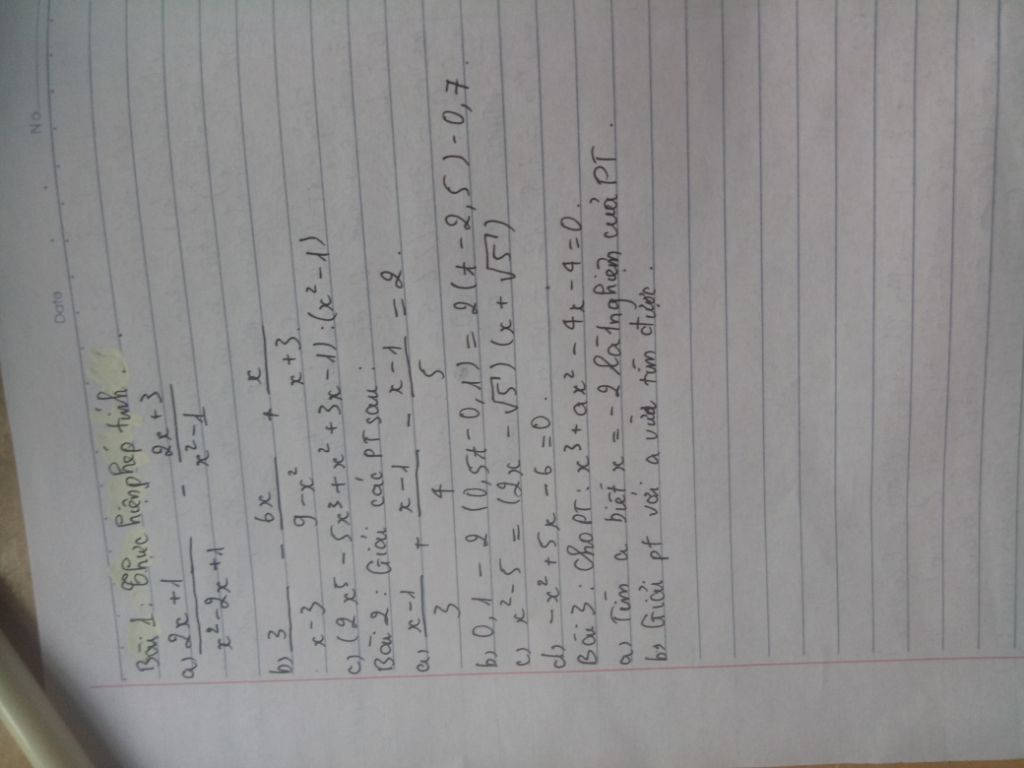 No.
Date
Bài 1: Thực hiện phép tính:
a) (2x+1)/(x²-2x+1) - (2x+3)/(x²-1)
b) 3/(x-3) - 6x/(9-x²) + x/(x+3)
c) (2x⁵-5x³+x²+3x-1):(x²-1)
Bài 2: Giải các PT sau:
a) (x-1)/3 + (x-1)/4 - (x-1)/5 = 2.
b) 0,1-2(0,5t-0,1)=2(t-2,5)-0,7.
c) x²-5=(2x-√5)(x+√5)
d) -x²+5x-6=0.
Bài 3: Cho PT: x³+ax²-4x-4=0.
a) Tìm a biết x=-2 là 1 nghiệm của PT.
b) Giải pt với a vừa tìm được.